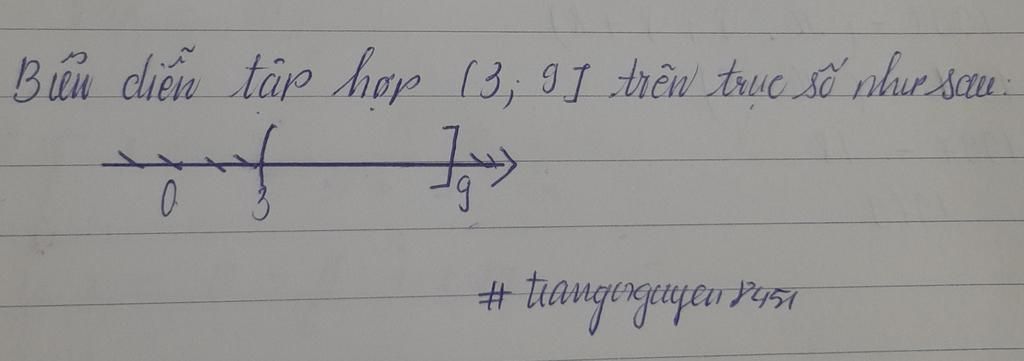 Biểu diễn tập hợp (3; 9] trên trục số như sau:
( ]
0 3 9
# trangnguyen8451